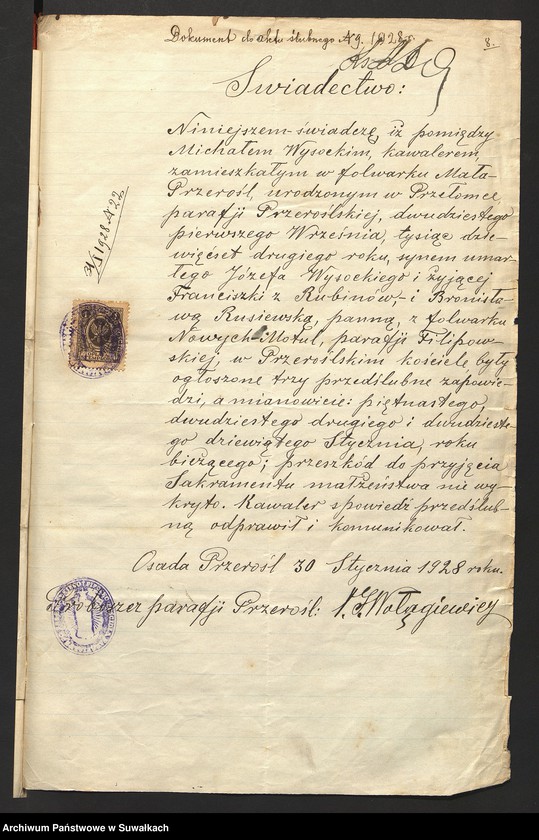 Dokument do aktu ślubnego № 9. 1928 r.
8.
Świadectwo:
Niniejszem świadczę, iż pomiędzy
Michałem Wysockim, kawalerem
zamieszkałym w folwarku Mała-
Przerośl, urodzonym w Przełomce,
parafji Przeroślskiej, dwudziestego
pierwszego Września, tysiąc dzie-
więćset drugiego roku, synem umar-
łego Józefa Wysockiego i żyjącej
Franciszki z Rubinów- i Bronisła-
wą Rusiewską, panną, z folwarku
Nowych-Motul, parafji Filipow-
skiej, w Przeroślskim kościele były
ogłoszone trzy przedślubne zapowie-
dzi, a mianowicie: piętnastego,
dwudziestego drugiego i dwudzieste-
go dziewiątego Stycznia, roku
bieżącego; przeszkód do przyjęcia
Sakramentu małżeństwa nie wy-
kryto. Kawaler spowiedź przedślub-
ną odprawił i komunikował.
Osada Przerośl 30 Stycznia 1928 roku.
Proboszcz parafji Przerośl: Wołągiewicz
31/I 1928 № 22
Archiwum Państwowe w Suwałkach